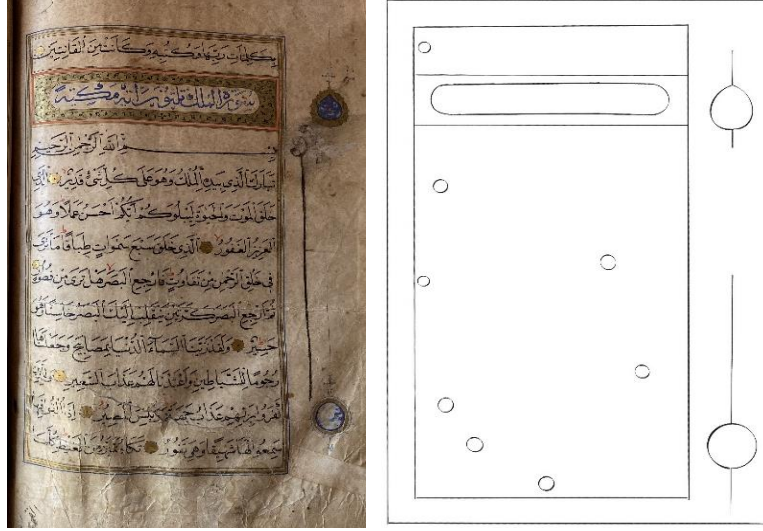 بكلمات ربها وكتبه وكانت من القانتين
سورة الملك ثلثون اية مكية
بسم الله الرحمن الرحيم
تبارك الذي بيده الملك وهو على كل شئ قدير الذي
خلق الموت والحيوة ليبلوكم ايكم احسن عملا وهو
العزيز الغفور الذي خلق سبع سموات طباقا ما ترى
في خلق الرحمن من تفاوت فارجع البصر هل ترى من فطور
ثم ارجع البصر كرتين ينقلب اليك البصر خاسئا وهو
حسير ولقد زينا السماء الدنيا بمصابيح وجعلناها
رجوما للشياطين واعتدنا لهم عذاب السعير وللذين
كفروا بربهم عذاب جهنم وبئس المصير اذا القوا فيها
سمعوا لها شهيقا وهي تفور تكاد تميز من الغيظ كلما